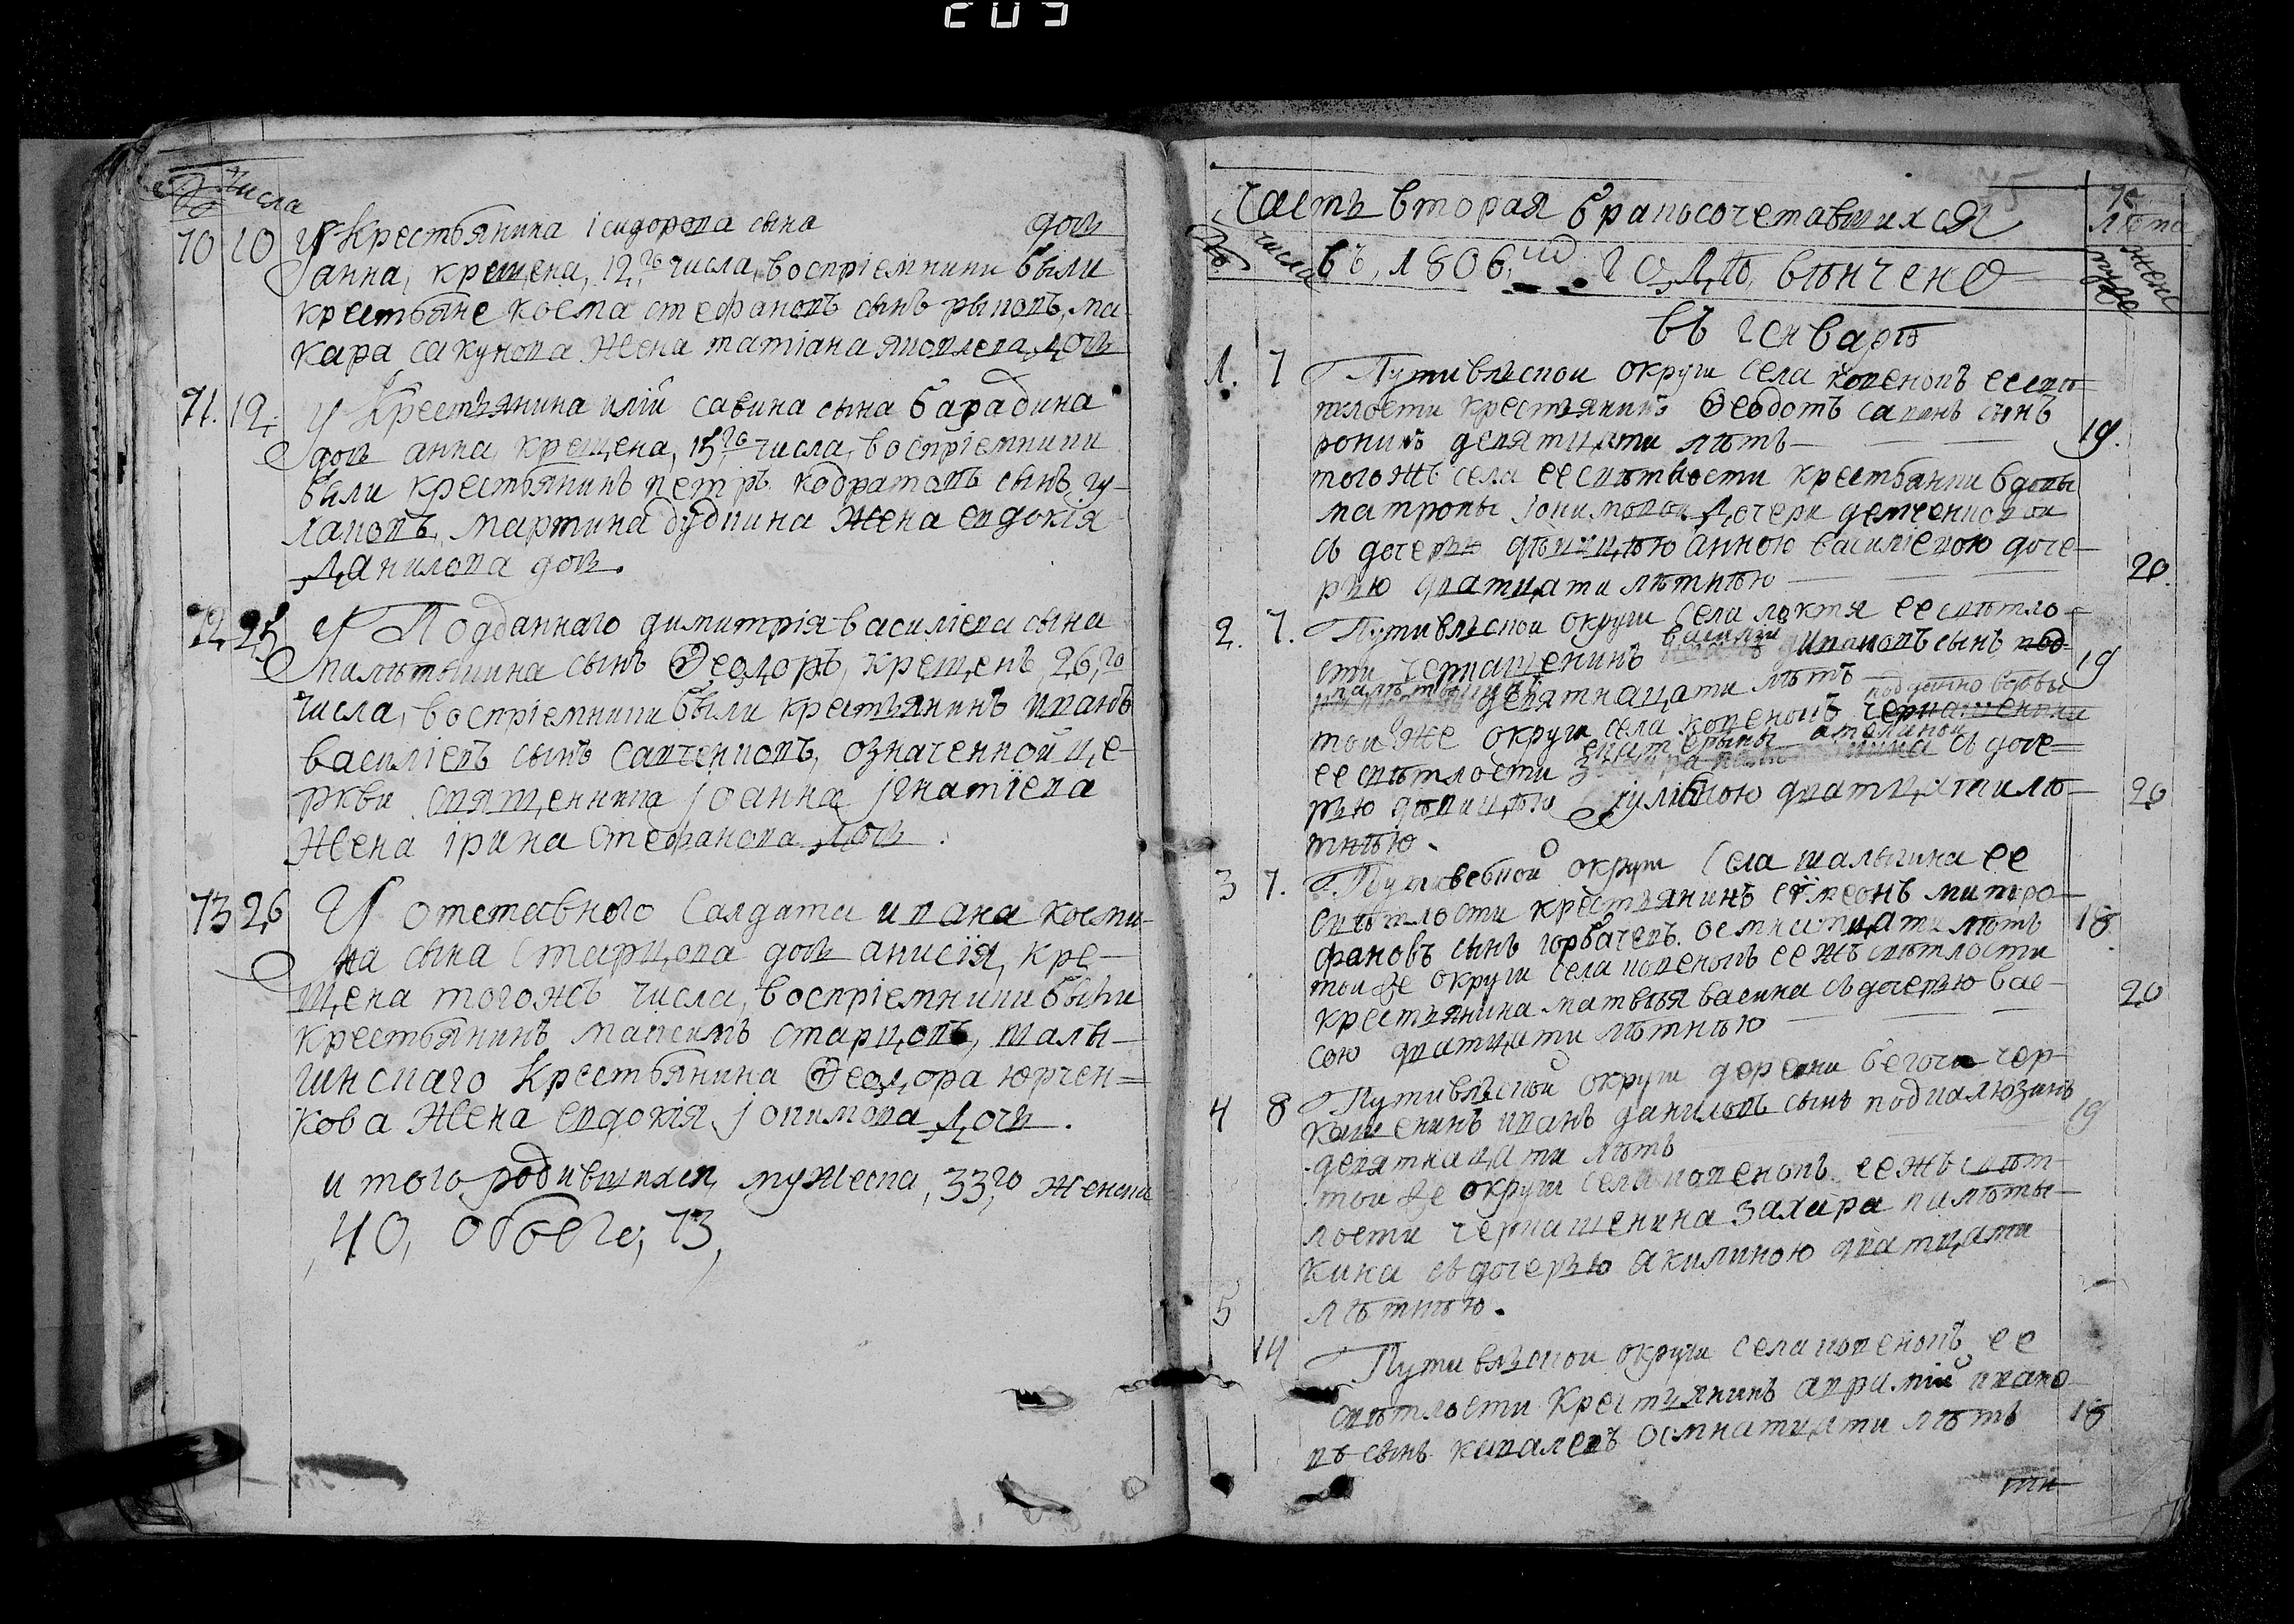 203
№ числа
70 10 У Крестьянина ісидорова сына дочь
анна, крещена, 12,го числа, воспріемники были
крестьяне косма стефановъ сынъ рыковъ, ма-
кара сакунова жена татіана яковлева дочь
71. 12, У Крестьянина иліи савина сына барадина
дочь анна, крещена, 15,го числа, воспріемники
были крестьянинъ петръ кодратовъ сынъ гу-
лаковъ, мартина будкина жена евдокія
данилова дочь.
72, 25, У Подданнаго димитрія василіева сына
сынъ Ѳеодоръ, крещенъ, 26,го
числа, воспріемники были крестьянинъ иванъ
василіевъ сынъ савченковъ, означенной це-
ркви священника јоанна јгнатіева
жена ірина стефанова дочь.
73 26 У отставного Салдата ивана косми-
на сына Старцова дочь анисія, кре-
щена тогожъ числа, воспріемники были
крестьянинъ максимъ старцовъ, шалы-
гинскаго крестьянина Ѳеодора юрчен=
кова жена евдокія јокимова дочь.
итого родившихся мужеска, 33,го женска
40, обоего, 73,
75
Часть вторая бракосочетавшихся
лѣта
№ числа въ, 1806,мъ годѣ, вѣнчено
муже жене
въ генварѣ
1. 7 Путивльской округи села ковенокъ ее свѣ
тлости крестьянинъ Ѳеодотъ савинъ сынъ
девятнцати лѣтъ 19.
тогожъ села ее свѣтлости крестьянки вдовы
матроны јокимовой дочери демченковой
съ дочерью дѣвицею анною василіевою доче-
рью дватцати лѣтнею 20.
2. 7. Путивльской округи села локтя ее свѣтло-
сти черкашенинъ василій ивановъ сынъ под- 19
девятнацати лѣтъ
той же округи села ковенокъ черкашенина подданно вдовы
ее свѣтлости екатерины съ доче=
рью дѣвицею јулитою дватцатилѣ- 20
тнею.
3 7. Путивской округи села шалыгина ее
свѣтлости крестьянинъ сѵмеонъ митро-
фановъ сынъ горбачевъ. осмнатцати лѣтъ 18.
той же округи села ковенокъ ее жъ свѣтлости
крестьянина матвѣя васина съ дочерью вас- 20
сою дватцати лѣтнею
4 8 Путивльской округи деревни бегочи чер-
кашенинъ иванъ даниловъ сынъ 19
девятнацати лѣтъ
той же округи села ковенокъ ее жъ свѣт-
лости черкашенина захара
кина съ дочерью акилиною дватцати
5 лѣтнею.
14 Путивльской округи села ковенокъ ее
свѣтлости крестьянинъ аврамій ивано-
въ сынъ ковалевъ осмнатцати лѣтъ 18